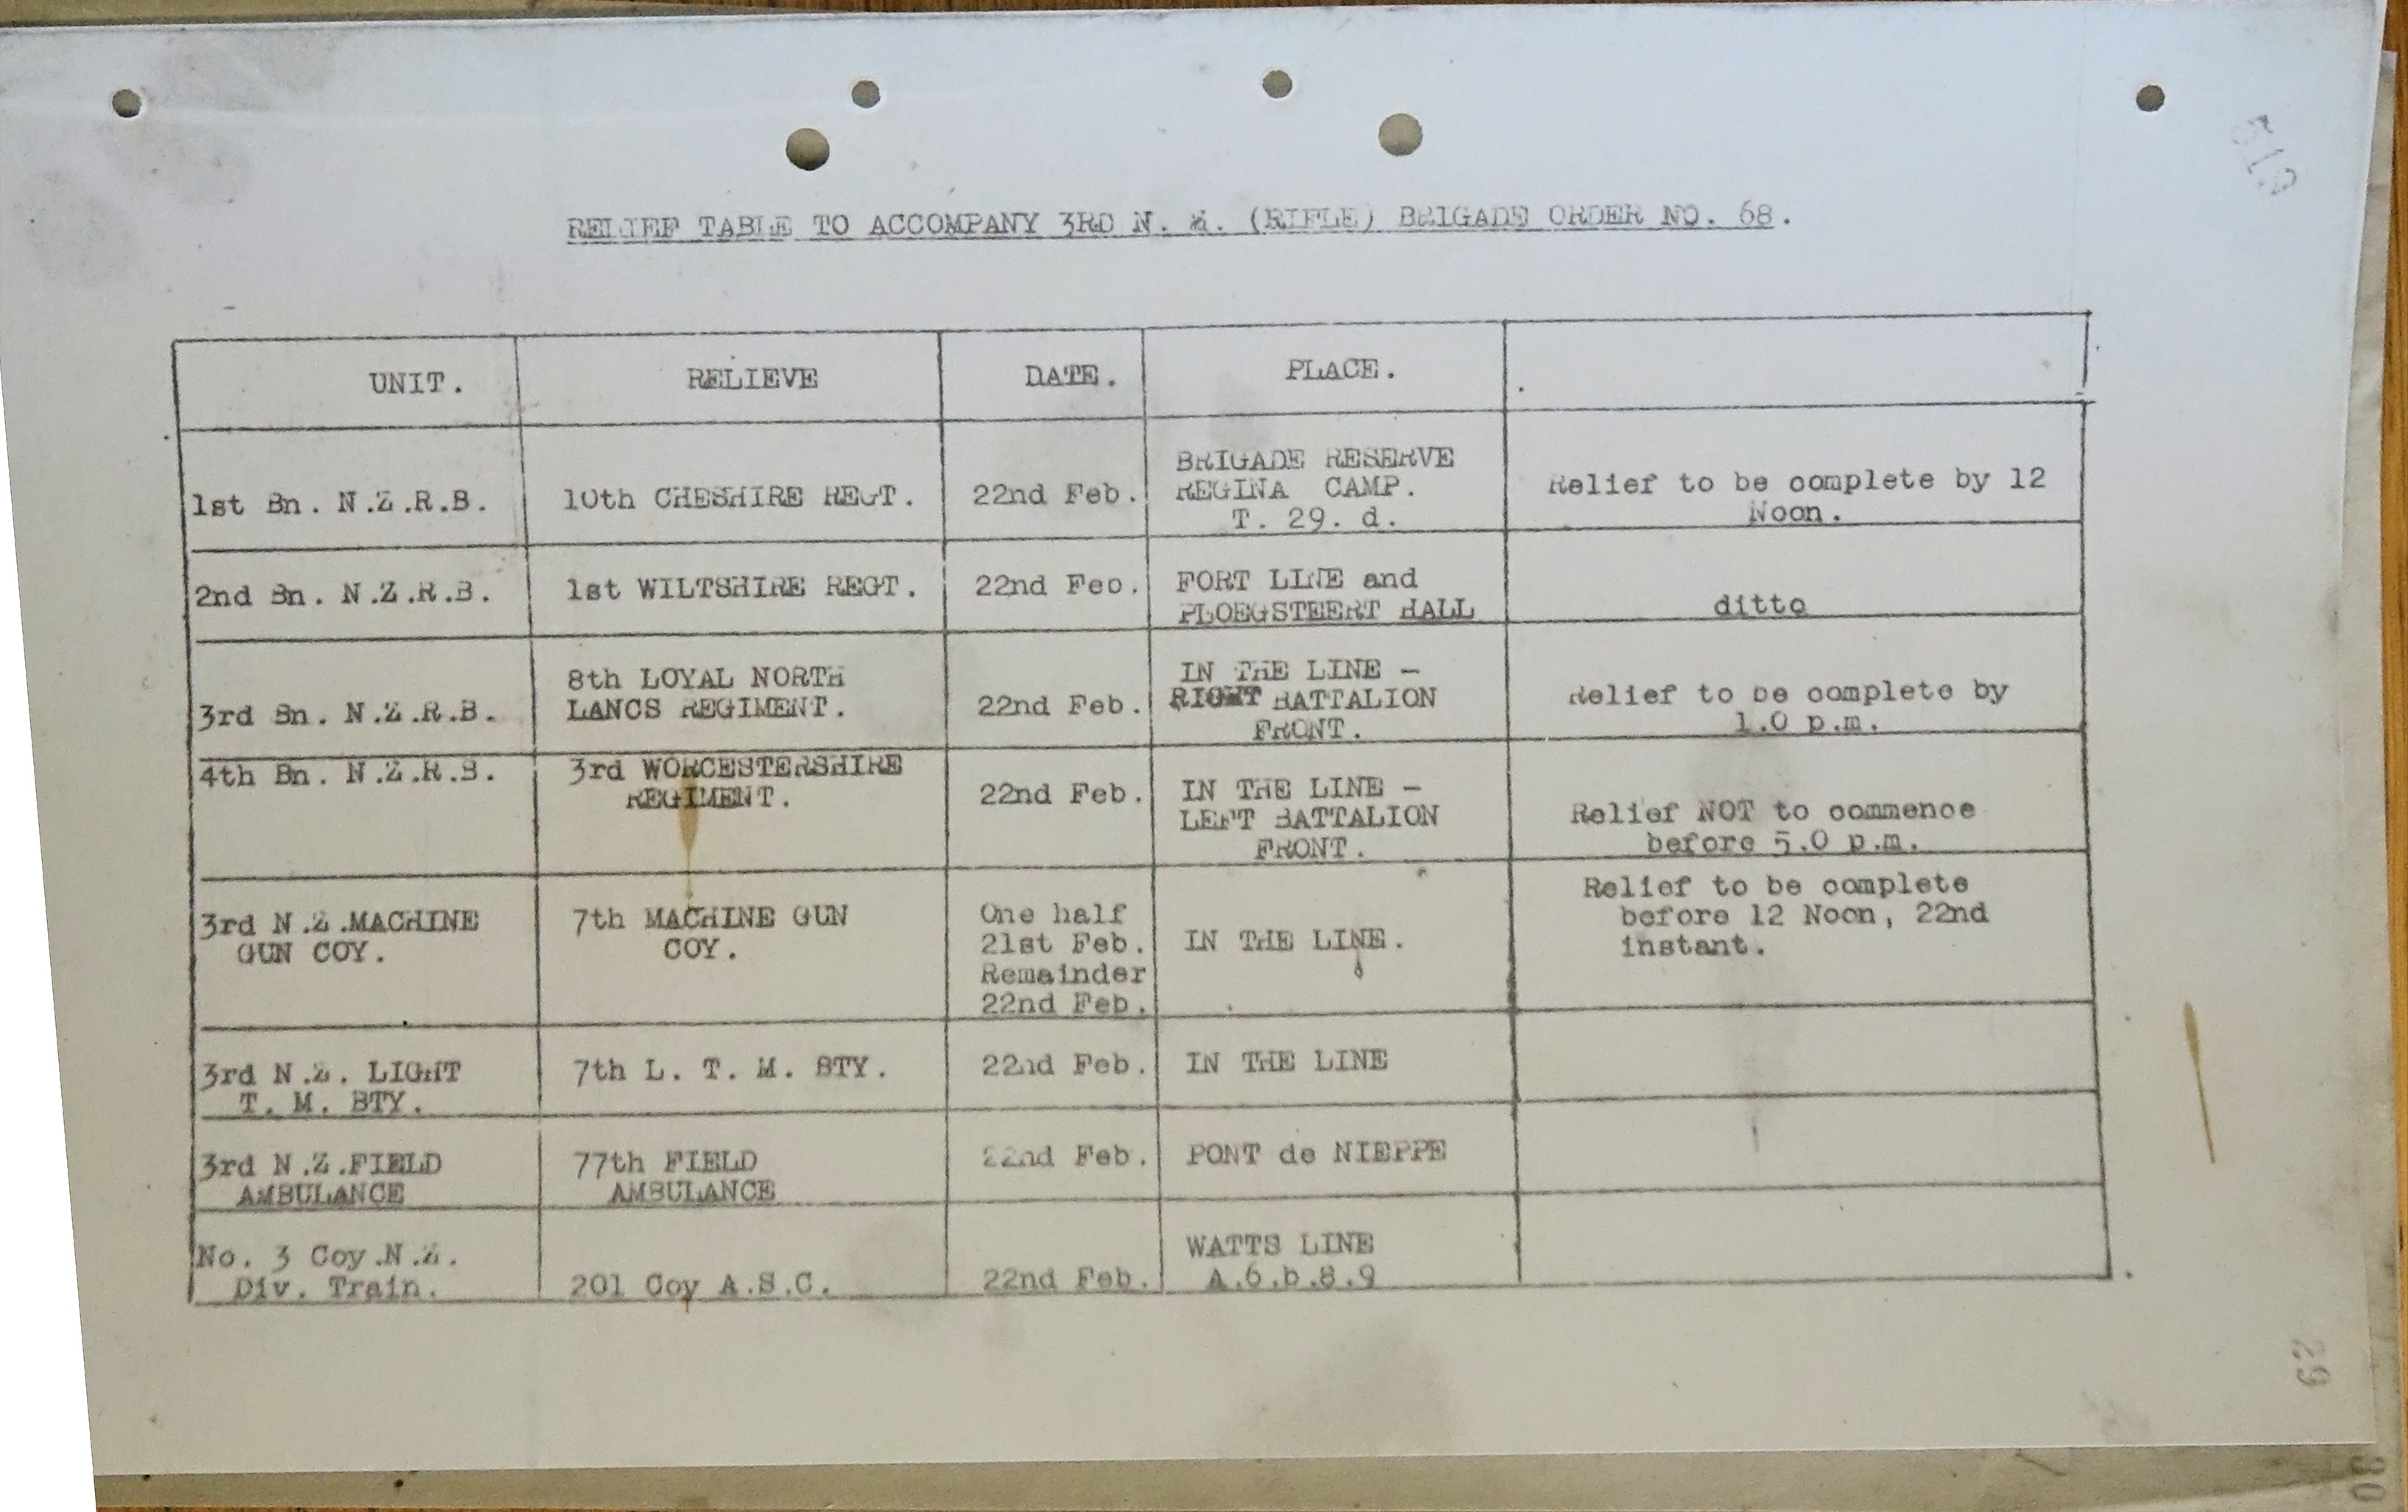 513
RELIEF TABLE TO ACCOMPANY 3RD N. Z. (RIFLE) BRIGADE ORDER NO. 68.
UNIT. RELIEVE DATE. PLACE.
1st Bn. N.Z.R.B. 10th CHESHIRE REGT. 22nd Feb. BRIGADE RESERVE Relief to be complete by 12
REGINA CAMP. Noon.
T. 29. d.
2nd Bn. N.Z.R.B. 1st WILTSHIRE REGT. 22nd Feb. FORT LINE and ditto
PLOEGSTEERT HALL
3rd Bn. N.Z.R.B. 8th LOYAL NORTH 22nd Feb. IN THE LINE - Relief to be complete by
LANCS REGIMENT. RIGHT BATTALION 1.0 p.m.
FRONT.
4th Bn. N.Z.R.B. 3rd WORCESTERSHIRE 22nd Feb. IN THE LINE - Relief NOT to commence
REGIMENT. LEFT BATTALION before 5.0 p.m.
FRONT.
3rd N.Z.MACHINE 7th MACHINE GUN One half IN THE LINE. Relief to be complete
GUN COY. COY. 21st Feb. before 12 Noon, 22nd
Remainder instant.
22nd Feb.
3rd N.Z. LIGHT 7th L. T. M. BTY. 22nd Feb. IN THE LINE
T. M. BTY.
3rd N.Z.FIELD 77th FIELD 22nd Feb. PONT de NIEPPE
AMBULANCE AMBULANCE
No. 3 Coy.N.Z. 201 Coy A.S.C. 22nd Feb. WATTS LINE
Div. Train. A.6.b.8.9
29
30